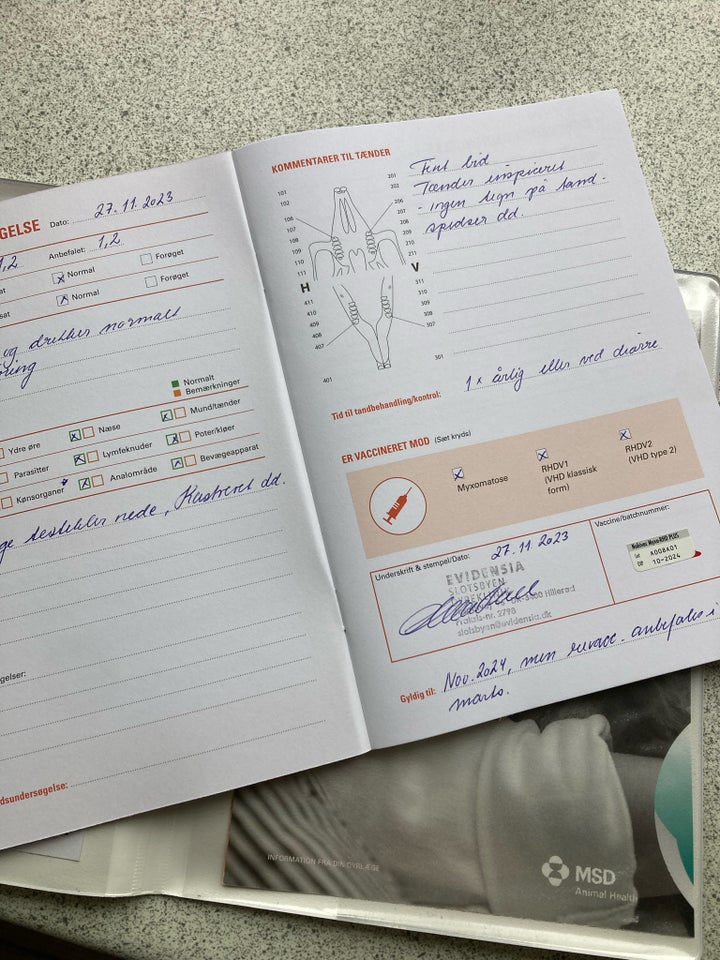 GELSE Dato: 27.11.2023
1,2 Anbefalet: 1,2
at Normal Forøget
sat Normal Forøget
og drikker normalt
Normalt
Bemærkninger
Ydre øre Næse Mund/tænder
Parasitter Lymfeknuder Poter/kløer
Kønsorganer Analområde Bevægeapparat
ge testikler nede, Kastreret dd.
gelser:
dsundersøgelse:
KOMMENTARER TIL TÆNDER
Fint bid
Tænder inspiceret
- ingen tegn på tand-
spidser dd.
101
102
106
107
108
109
110
111
201
202
206
207
208
209
210
211
H
V
411
410
409
408
407
401
311
310
309
308
307
301
Tid til tandbehandling/kontrol: 1 x årlig eller ved diarre
ER VACCINERET MOD (Sæt kryds)
Myxomatose
RHDV1
(VHD klassisk
form)
RHDV2
(VHD type 2)
Underskrift & stempel/Dato: 27.11.2023
EVIDENSIA
SLOTSBYEN
3400 Hillerød
Praksis-nr. 2798
slotsbyen@evidensia.dk
Vaccine/batchnummer:
Nobivac Myxo-RHD PLUS
Lot A008A01
EXP 10-2024
Gyldig til: Nov. 2024, men revacc. anbefales i
marts.
INFORMATION FRA DIN DYRLÆGE
MSD
Animal Health